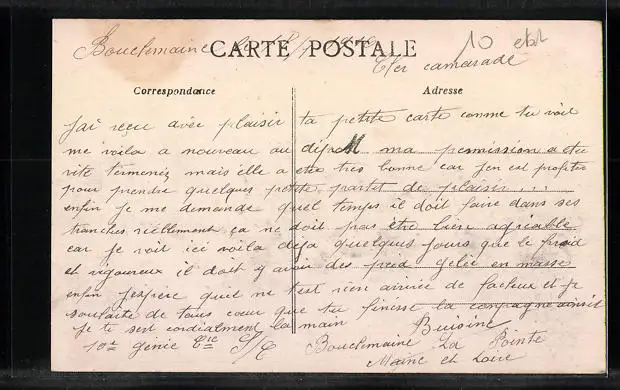 10 
Bouchemaine le
CARTE POSTALE
Cher camarade
Correspondance
Adresse
J'ai recu avec plaisir ta petite carte comme tu voit
me voila a nouveau au dépot ma permission a etu
vite terminez mais elle a etre tres bonne car jen est profiter
pour prendre quelques petite partit de plaisir...
enfin je me demande quel temps il doit faire dans ses
tranches réellement ça ne doit pas être bien agréable
car je voit ici voila déja quelques jours que le froid
est rigoureux il doit y avoir des pied gélée en masse
enfin j'espère quil ne t'est rien arrivée de facheux et je
souhaite de tous coeur que tu finisse la campagne ainsit
je te sert cordialment la main
Buisine
10e génie Cie S/E Bouchemaine La Pointe
Maine et Loire